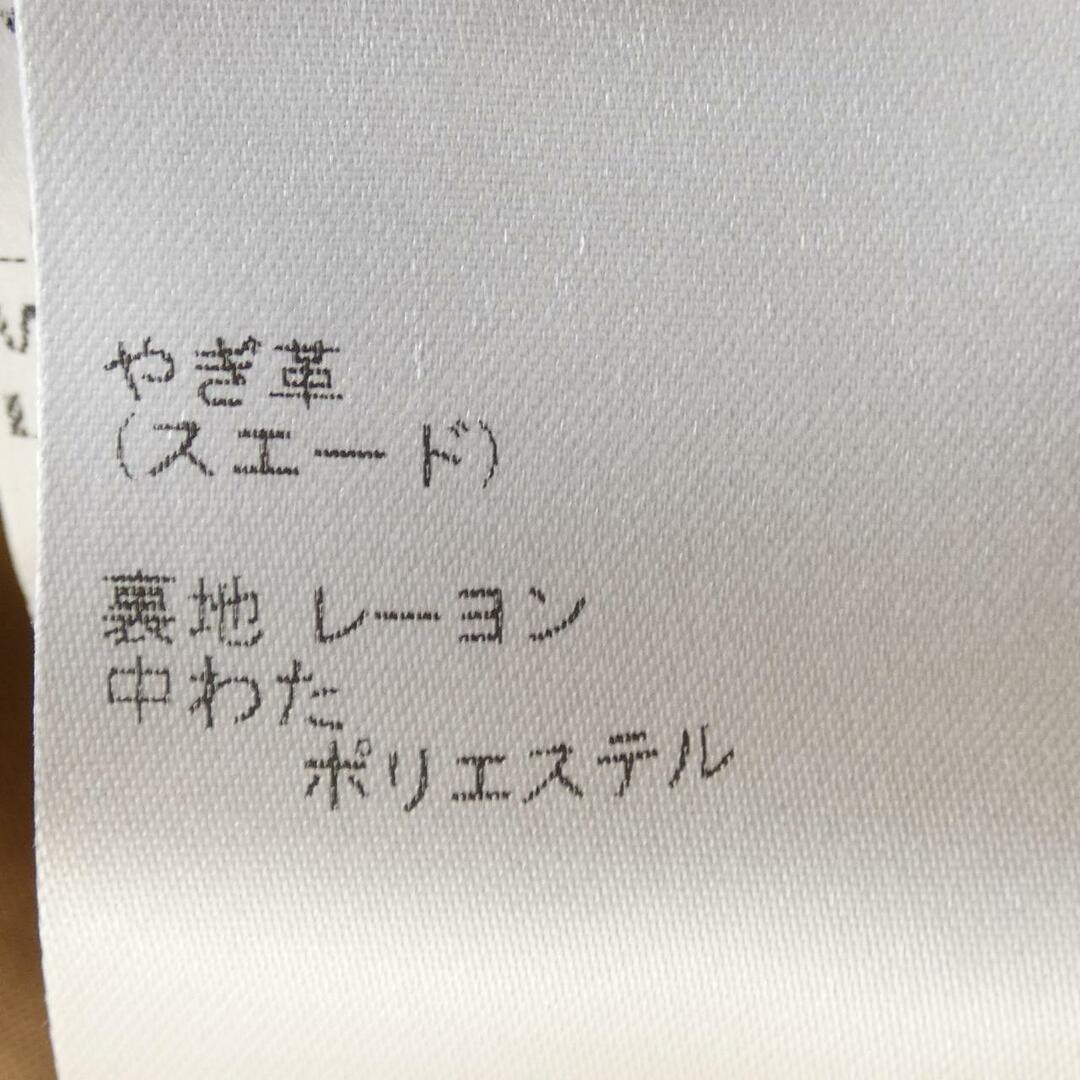 やぎ革
(スエード)
裏地 レーヨン
中わた
ポリエステル